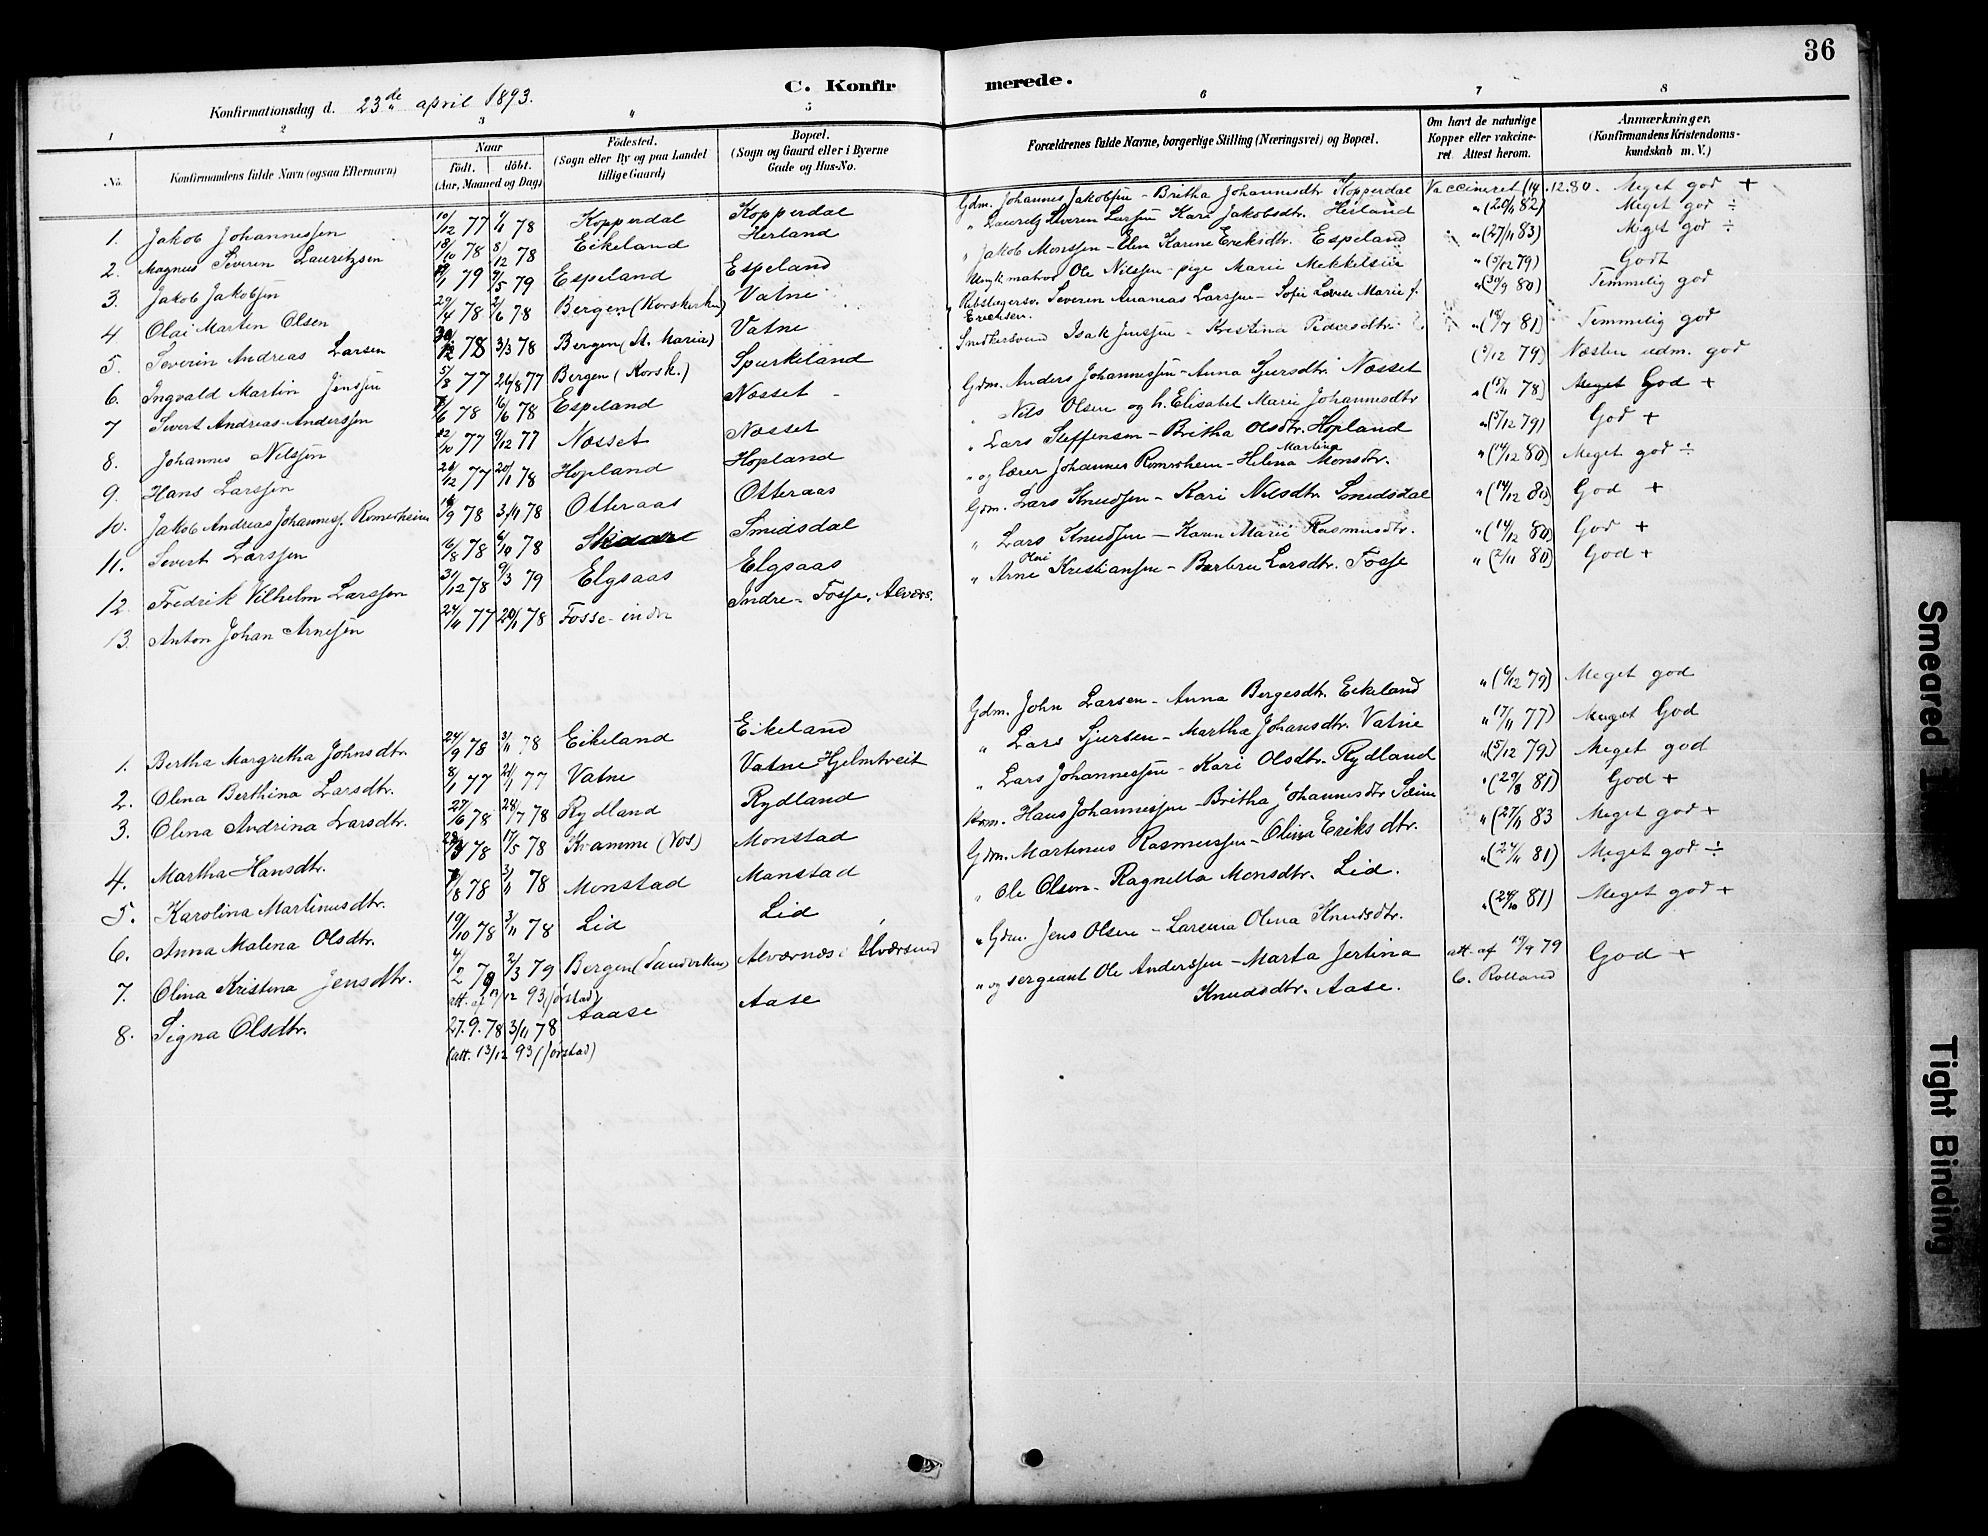 36
C. Konfirmerede.
Konfirmationsdag d. 23de april 1893.
1 2 3 4 5 6 7 8
No. Konfirmandens fulde Navn (ogsaa Efternavn) Naar Födt. döbt. (Aar, Maaned og Dag) Födested. (Sogn eller By og paa Landet tillige Gaard) Bopæl. (Sogn og Gaard eller i Byerne Gade og Hus-No. Forældrenes fulde Navne, borgerlige Stilling (Næringsvei) og Bopæl. Om havt de naturlige Kopper eller vakcineret. Attest herom. Anmærkninger. (Konfirmandens Kristendomskundskab m. V.)
1. Jakob Johannessen 10/12 77 1/1 78 Kopperdal Kopperdal Gdm. Johannes Jakobsen - Britha Johannesdtr. Kopperdal Vaccineret (14.12.80. Meget god +
2. Magnus Severin Lauritzsen 18/10 78 8/12 78 Eikeland Herland " Lauritz Severin Larsen Kari Jakobsdtr. Herland " (20/11 82) Meget god ÷
3. Jakob Jakobsen 79 79 Espeland Espeland " Jakob Monssen - Elen Karine Eriksdtr. Espeland " (27/11 83) Meget god ÷
4 Olai Martin Olsen 29/4 78 2/6 78 Bergen (Korskirken) Vatne Ole Nilssen - pige Marie Mekkelsen " (5/12 79) Godt
5. Severin Andreas Larsen 78 3/3 78 Bergen (St. Maria) Vatne Severin Andreas Larssen - Sofie Lovise Marie f. Erichsen. " (30/9 80) Temmelig god
6. Ingvald Martin Jenssen 5/8 77 26/8 77 Bergen (Korsk.) Spurkeland Smedkersvend Isak Jenssen - Kristina Pedersdtr. " (18/7 81) Temmelig god
7 Sivert Andreas Anderssen 78 16/6 78 Espeland Nosset Gdm. Anders Johannessen - Anna Sjursdtr. Nosset (5/12 79) Næsten udm. god
8. Johannes Nilssen 22/10 77 9/12 77 Nosset Nosset " Nils Olsen og h. Elisabet Marie Johannesdtr " (15/11 78) Meget God +
9. Hans Larssen 26/12 77 20/1 78 Hopland Hopland " Lars Steffensen - Britha Olsdtr. Hopland " (5/12 79) God +
10. Jakob Andreas Johannesj. Romerheim 16/9 78 3/11 78 Otteraas Otteraas " og lærer Johannes Romerheim - Helena Martina Monsdtr. " (14/12 80) Meget god ÷
11. Sivert Larssen 16/8 78 6/10 78 Skaare Smidsdal Gdm. Lars Knudsen - Kari Nilsdtr. Smidsdal " (14/12 80) God +
12. Fredrik Vilhelm Larssen 31/12 78 9/3 79 Elgsaas Elgsaas " Lars Knudsen - Karen Marie Rasmusdtr. " (14/12 80) God +
13. Anton Johan Arnesen 24/11 77 20/1 78 Fosse indre Indre - Fosse, Alvers. " Arne Olai Kristiansen - Barbru Larsdtr. Fosse " (2/11 80) God +
1. Bertha Margretha Johnsdtr. 24/9 78 3/11 78 Eikeland Eikeland Gdm. John Larsen - Anna Bergesdtr. Eikeland " (6/12 79) Meget god
2. Olina Berthina Larsdtr. 8/1 77 21/1 77 Vatne Vatne Hjelmtveit " Lars Sjursen - Martha Johansdtr. Vatne " 17/11 77) Meget God
3. Olina Andrina Larsdtr. 27/6 78 28/7 78 Rydland Rydland " Lars Johannessen - Kari Olsdtr. Rydland " (5/12 79) Meget god
4. Martha Hansdtr. 78 17/5 78 Kvamme (Vos) Monstad Hans Johannessen - Britha Johannesdtr Sæim " (29/8 81) God +
5. Karolina Martinusdtr. 78 3/11 78 Monstad Monstad Gdm. Martinus Rasmussen - Olina Eriksdtr. " (27/11 83 Meget god +
6. Anna Malena Olsdtr. 19/10 78 3/11 78 Lid Lid " Ole Olsen - Ragnilla Monsdtr. Lid. " (24/11 81) Meget god ÷
7. Olina Kristina Jensdtr. 4/2 79 2/3 79 Bergen (Sandviken) Alværnæs i Alværsund " Gdm. Jens Olsen - Larsina Olina Knudsdtr. " (24/10 81) Meget god +
att. af 13/12 93 (Jørstad)
8. Signa Olsdtr. 27.9.78 3/11 78 Aaase Aase " og sergeant Ole Anderssen - Marta Jertina Knudsdtr. Aase. att. af 19/9 79 C. Rolland God +
(att. 13/12 93 (Jørstad)
Smeared
Tight Binding